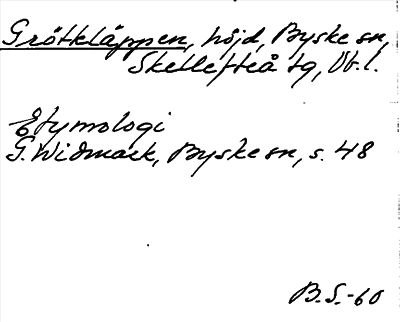 Grötkläppen, höjd, Byske sn,
Skellefteå tg, Vb.l.
Etymologi
G. Widmark, Byske sn, s. 48
B.S.-60